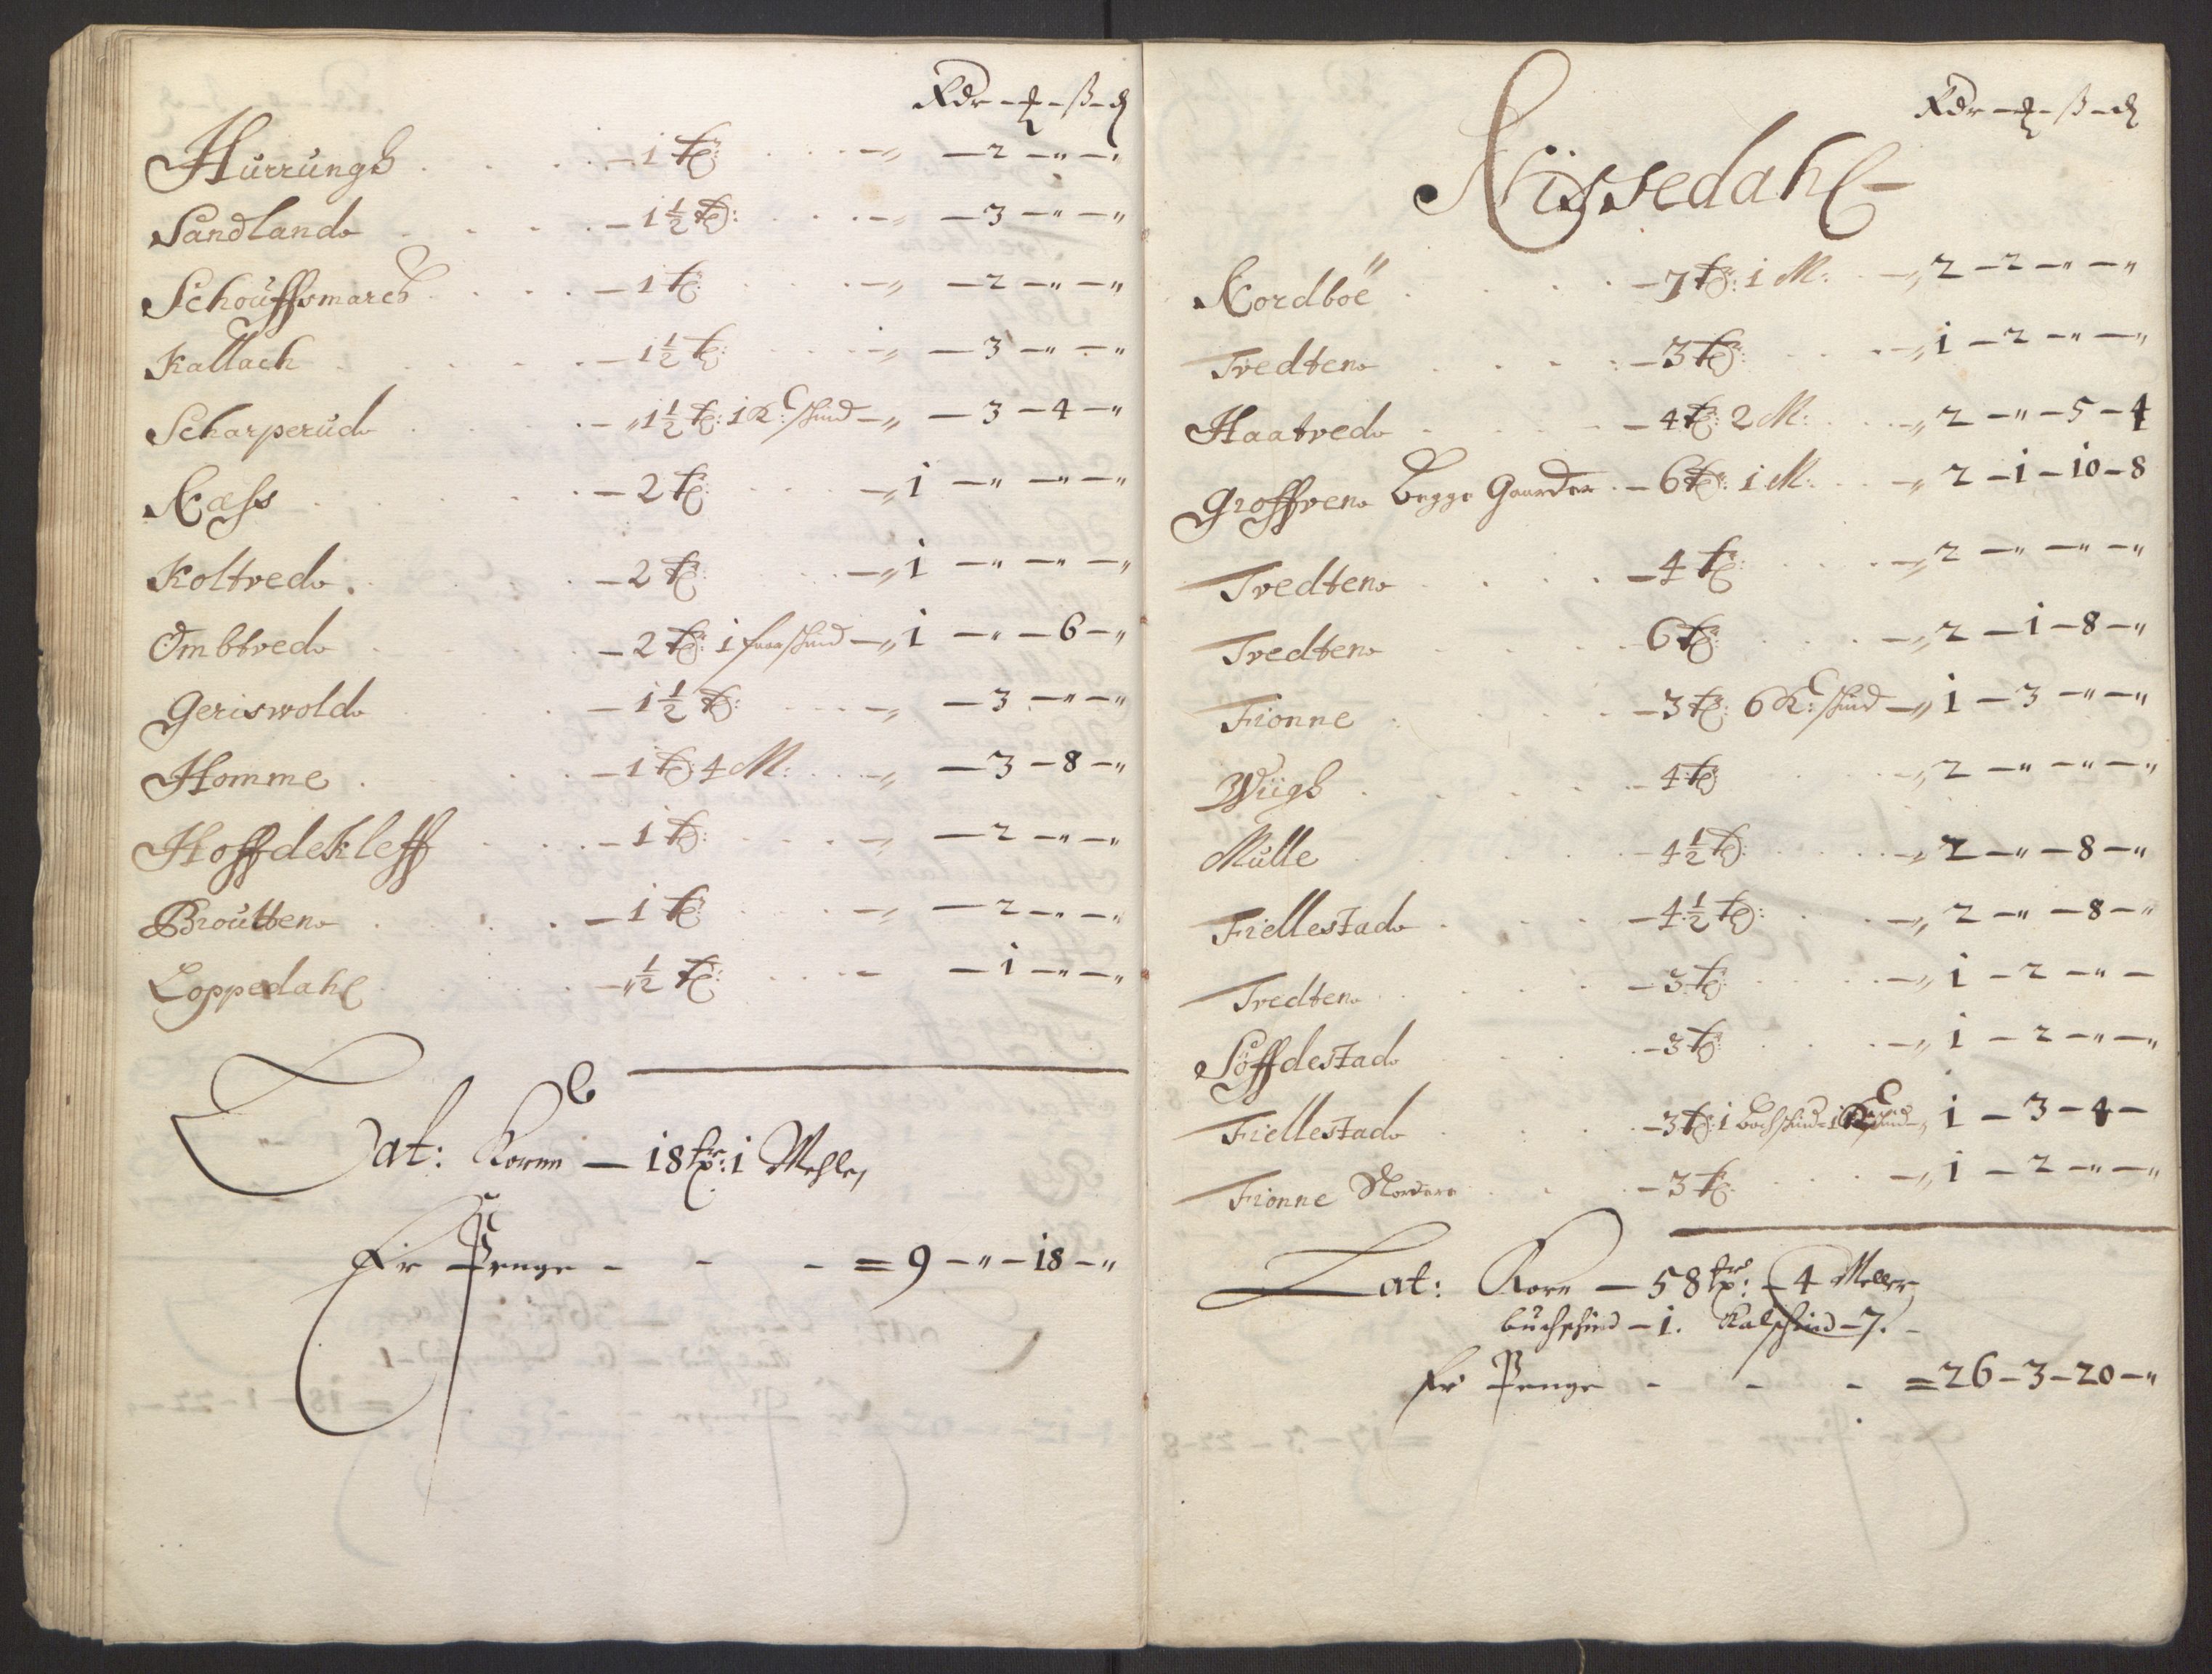 Rdr - ₰ - ß - ₰
Hurrungh . . . . - 1 tr: . . . - „ - 2 - „ - „
Sandland . . . . - 1 1/2 tr: . . . - „ - 3 - „ - „
Schouffsmarch . . . - 1 tr: . . . - „ - 2 - „ - „
Kallach . . . . - 1 1/2 tr: . . . - „ - 3 - „ - „
Scharperud . . . . - „ 1 1/2 tr: 1 K: skind - „ - 3 - 4 - „
Næss . . . . - 2 tr: . . . - „ 1 - „ - „ - „
Koltved . . . . - 2 tr: . . . - „ 1 - „ - „ - „
Ombtved . . . . - 2 tr: 1 faarskind - „ 1 - „ - 6 - „
Geriswold . . . . - 1 1/2 tr: . . . - „ - 3 - „ - „
Homme . . . . - 1 tr: 4 M: . . . - „ - 3 - 8 - „
Hoffdekleff . . . - 1 tr: . . . - „ - 2 - „ - „
Broutten . . . . - 1 tr: . . . - „ - 2 - „ - „
Loppedahl . . . . - „ 1/2 tr: . . . - - 1 - „ - „
Lat: Kornn - 18 tr: 1 Mehle,
Er Penge - - - = 9 - „ - 18 - „
Rdr - ₰ - ß - ₰
Nissedahl -
Nordböe . . . . - 7 tr: 1 M: - „ 2 - 2 - „ - „
Tvedten . . . . - 3 tr: . . . - „ 1 - 2 - „ - „
Haatved . . . . - 4 tr: 2 M: . . . - „ 2 - „ - 5 - 4
Groffven begge Gaarder . - 6 tr: 1 M: . . - „ 2 - 1 - 10 - 8
Tvedten . . . . - 4 tr: . . . - „ 2 - „ - „ - „
Tvedten . . . . 6 tr: . . . - „ 2 - 1 - 8 - „
Fionne . . . . - 3 tr: 6 K: skind - „ 1 - 3 - „ - „
Wiigh . . . . - 4 tr: . . . - „ 2 - „ - „ - „
Mulle . . . . - 4 1/2 tr: . . . - „ 2 - „ - 8 - „
Fiellestad . . . . - 4 1/2 tr: . . . - „ 2 - „ - 8 - „
Tvedten . . . . - 3 tr: . . . - „ 1 - 2 - „ -
Söffdestad . . . . - 3 tr: . . . - „ 1 - 2 - „ - „
Fiellestad . . . . - 3 tr: 1 bochskind 1 K skind - „ 1 - 3 - 4 -
Fionne Nordere . . . - 3 tr: . . . - „ 1 - 2 - „ - „
Lat: Korn - 58 tr: - 4 Meller
buchskind - 1. Kalfskind - 7. -
Er Penge - - - = 26 - 3 - 20 - „